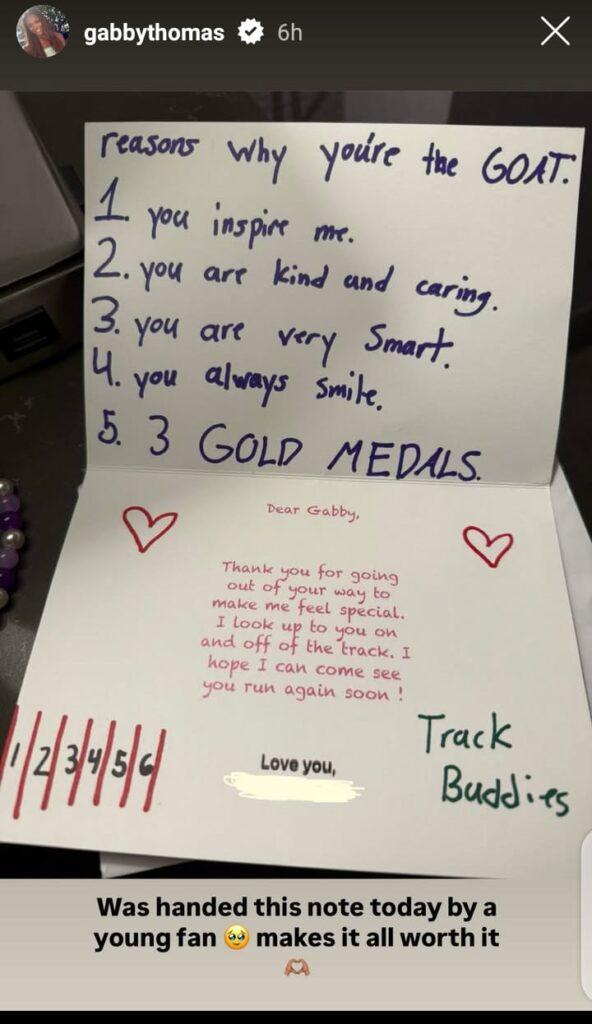 gabbythomas 6h
reasons why you're the GOAT:
1. you inspire me.
2. you are kind and caring.
3. you are very smart.
4. you always smile.
5. 3 GOLD MEDALS.
Dear Gabby,
Thank you for going
out of your way to
make me feel special.
I look up to you on
and off of the track. I
hope I can come see
you run again soon !
Love you,
Track
Buddies
1 2 3 4 5 6
Was handed this note today by a
young fan 🥹 makes it all worth it
🫶🏽